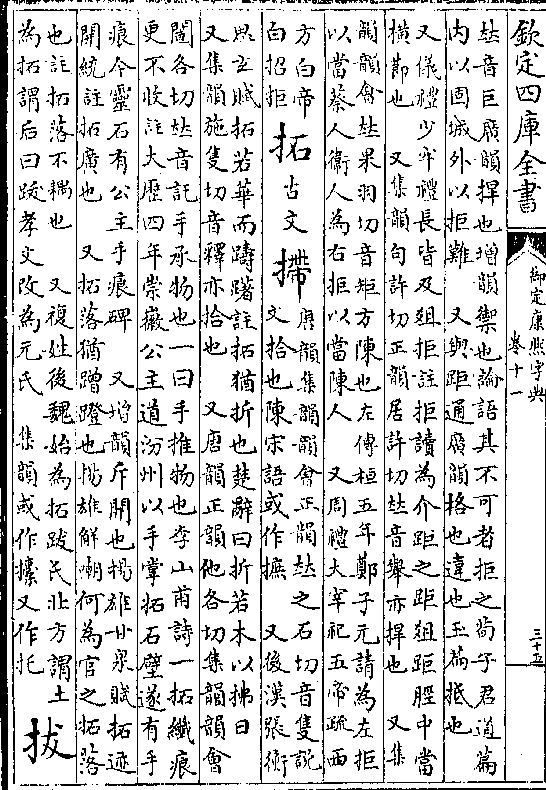 欽定四庫全書
御定康熙字典
卷十一
三十五
𠀤音巨廣韻捍也增韻禦也論語其不可者拒之荀子君道篇
内以固城外以拒難 又與距通廣韻格也違也玉篇抵也
又儀禮少牢禮長皆及俎拒註拒讀為介距之距俎距脛中當
橫節也 又集韻句許切正韻居許切𠀤音舉亦捍也 又集
韻韻會𠀤果羽切音矩方陳也左傳桓五年鄭子元請為左拒
以當蔡人衛人為右拒以當陳人 又周禮大宰祀五帝疏西
方白帝
白招拒
拓 古文 摕
唐韻集韻韻會正韻𠀤之石切音隻説
文拾也陳宋語或作摭 又後漢張衡
思玄賦拓若華而躊躇註拓猶折也楚辭曰折若木以拂日
又集韻施隻切音釋亦拾也 又唐韻正韻他各切集韻韻會
闥各切𠀤音託手承物也一曰手推物也李山甫詩一拓纖痕
更不收註大歷四年崇徽公主道汾州以手掌拓石壁遂有手
痕今靈石有公主手痕碑 又增韻斥開也揚雄甘泉賦拓迹
開統註拓廣也 又拓落猶蹭蹬也揚雄解嘲何為官之拓落
也註拓落不耦也 又複姓後魏始為拓跋氏北方謂土
為拓謂后曰跋孝文改為元氏 集韻或作 又作托
拔